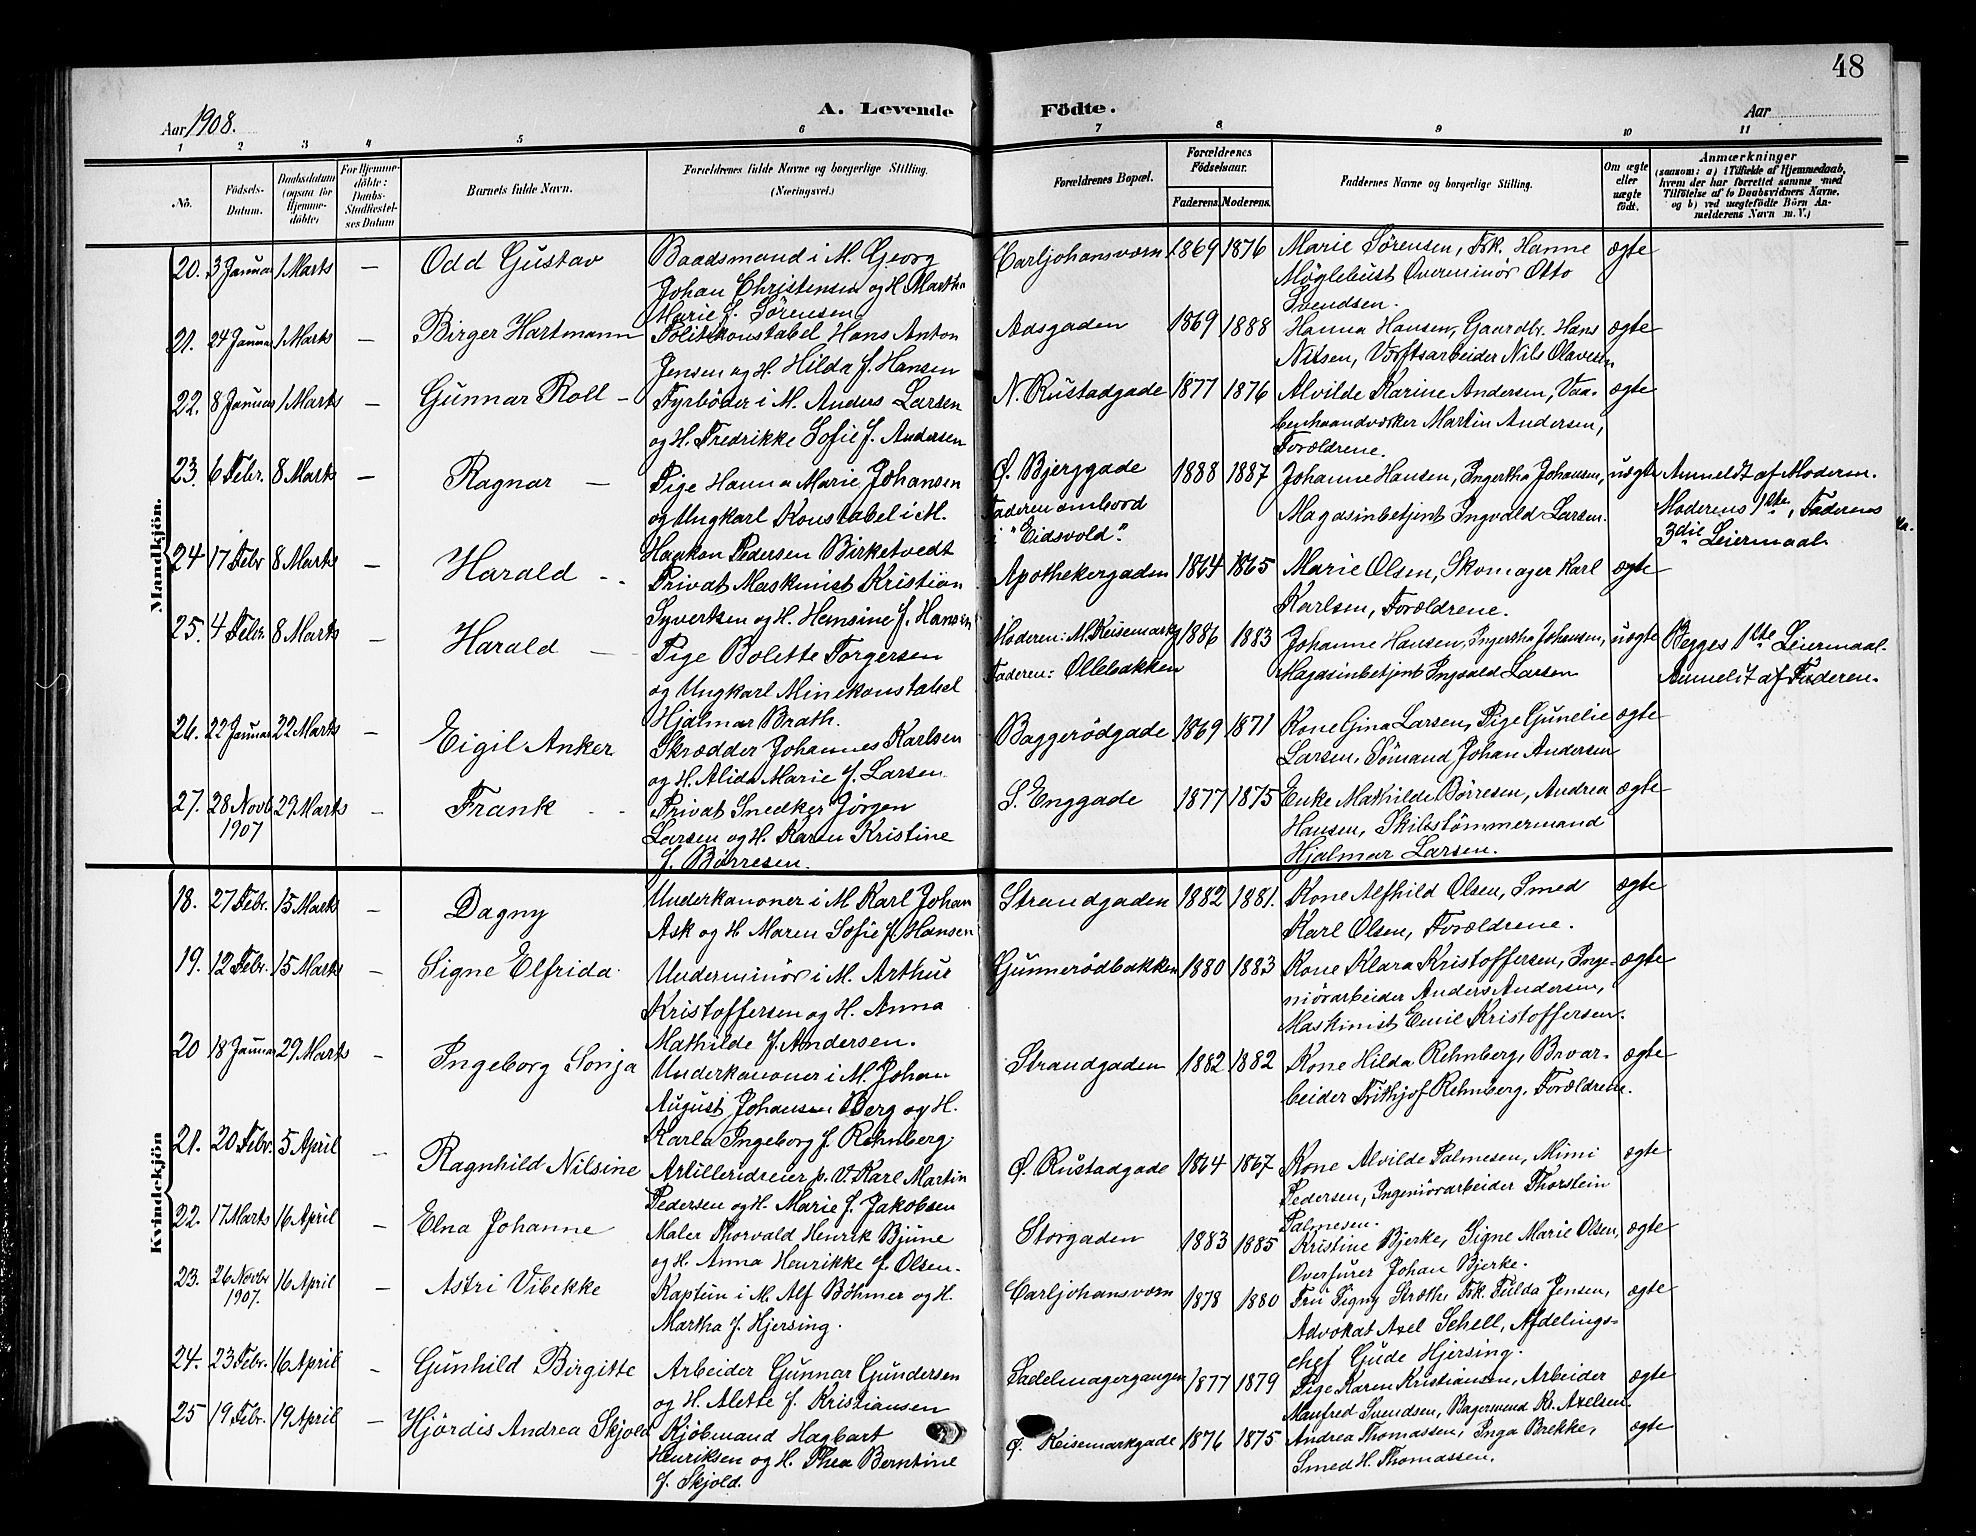 48
Aar 1908.
A. Levende Födte.
Aar
1 2 3 4 5 6 7 8 9 10 11
No.
Födsels-Datum.
Daabsdatum (ogsaa for Hjemme-döbte)
For Hjemme-döbte: Daabs-Stadfæstel-ses Datum
Barnets fulde Navn.
Forældrenes fulde Navne og borgerlige Stilling. (Næringsvei.)
Forældrenes Bopæl.
Forældrenes Födselsaar.
Faderens. Moderens.
Faddernes Navne og borgerlige Stilling.
Om ægte eller uægte födt.
Anmærkninger
(saasom: a) i Tilfælde af Hjemmedaab,
hvem der har forrettet samme med
Tilföielse af to Daabsvidners Navne.
og b) ved uægtefödte Börn An-
melderens Navn m. V.)
Mandkjön.
20. 3 Januar 1 Marts — Odd Gustav
Baadsmand i M. Georg
Johan Christensen og H. Martha
Marie f. Sörensen
Carljohansværn 1869 1876
Marie Sørensen, Frk. Hanne
Möglebust Overminör Otto
Svendsen.
ægte
21. 24 Januar 1 Marts — Birger Hartmann
Politikonstabel Hans Anton
Jensen og H. Hilda f. Hansen
Aasgaden 1869 1888
Hanna Hansen, Gaardbr. Hans
Nilsen, Værftsarbeider Nils Olavesen
ægte
22. 8 Januar 1 Marts — Gunnar Roll —
Fyrböder i M. Anders Larsen
og H. Fredrikke Sofie f. Andersen
N. Rustadgade 1877 1876
Alvilde Karine Andersen, Vaa-
benhaandværker Martin Andersen,
Forældrene.
ægte
23. 6 Febr. 8 Marts — Ragnar —
Pige Hanna Marie Johansen
og Ungkarl Konstabel i M.
Haakon Pedersen Birketvedt
Ø. Bjerggade
Faderen ombord
i "Eidsvold".
1888 1887
Johanne Hansen, Ingertha Johansen,
Magasinbetjent Ingvald Larsen.
uægte
Anmeldt af Moderen.
Moderens 1ste, Faderens
3die Leiermaal.
24 17 Febr 8 Marts — Harald - -
Privat Maskinist Kristian
Syvertsen og H. Hensine f. Hansen
Apothekergaden 1864 1865
Marie Olsen, Skomager Karl
Karlsen, Forældrene.
ægte
25. 4 Febr. 8 Marts — Harald —
Pige Bolette Torgersen
og Ungkarl Minekonstabel
Hjalmar Brath.
Moderen: M. Keisemarkg
Faderen: Ollebakken
1886 1883
Johanne Hansen, Ingertha Johansen,
Magasinbetjent Ingvald Larsen
uægte
Begges 1ste Leiermaal.
Anmeldt af Faderen.
26. 22 Januar 22 Marts — Eigil Anker
Skrædder Johannes Karlsen
og H. Alida Marie f. Larsen
Baggerödgade 1869 1871
Kone Gina Larsen, Pige Gunelie
Larsen, Sömand Johan Andersen
ægte
27. 28 Novb. 1907 29 Marts — Frank - -
Privat Snedker Jörgen
Larsen og H. Karen Kristine
f. Börresen.
S. Enggade 1877 1875
Enke Mathilde Børresen, Andrea
Hansen, Skibstömmermand
Hjalmar Larsen.
ægte
Kvindekjön
18. 27 Febr. 15 Marts — Dagny
Underkanoner i M Karl Johan
Ask og H Maren Sofie f. Hansen
Strandgaden 1882 1881.
Kone Alfhild Olsen, Smed
Karl Olsen, Forældrene.
ægte
19. 12 Febr. 15 Marts — Signe Elfrida
Underminör i M. Arthur
Kristoffersen og H. Anna
Mathilde f. Andersen.
Gunnerödbakken 1880 1883
Kone Klara Kristoffersen, Inge-
niörarbeider Anders Andersen,
Maskinist Emil Kristoffersen.
ægte
20 18 Januar 29 Marts — Ingeborg Sonja
Underkanoner i M. Johan
August Johansen Berg og H.
Karla Ingeborg f. Rehnberg.
Strandgaden 1882 1882
Kone Hilda Rehnberg, Brvar-
beider Frithjof Rehnberg, Forældrene.
ægte
21. 20 Febr. 5 April — Ragnhild Nilsine
Artilleridreier p. V. Karl Martin
Pedersen og H. Marie f. Jakobsen
Ø. Rustadgade 1864 1867
Kone Alvilde Palmesen, Mimi
Pedersen, Ingeniörarbeider Thorstein
Palmesen.
ægte
22. 17 Marts 16 April — Elna Johanne
Maler Thorvald Henrik Bjune
og H. Anna Henrikke f. Olsen.
Storgaden 1883 1885
Kristine Bjerke, Signe Marie Olsen,
Overfurer Johan Bjerke.
ægte
23. 26 Novbr 1907. 16 April — Astri Vibekke
Kaptein i M. Alf Böhmer og H.
Martha f. Hjersing.
Carljohansværn 1878 1880
Fru Signy Frk. Fulda Jensen,
Advokat Axel Schell, Afdelings-
chef Gude Hjersing.
ægte
24. 23 Febr. 16 April — Gunhild Birgitte
Arbeider Gunnar Gundersen
og H. Alette f. Kristiansen
Sadelmagergangen 1877 1879
Pige Karen Kristiansen, Arbeider
Manfred Svendsen, Bagersvend Kr. Axelsen.
ægte
25 19 Febr. 19 April — Hjördis Andrea Skjold
Kjöbmand Hagbart
Henriksen og H. Thea Berntine
f. Skjold.
Ø. Keisemarkgade 1876 1875
Andrea Thomassen, Inga Brekke,
Smed H. Thomassen.
ægte